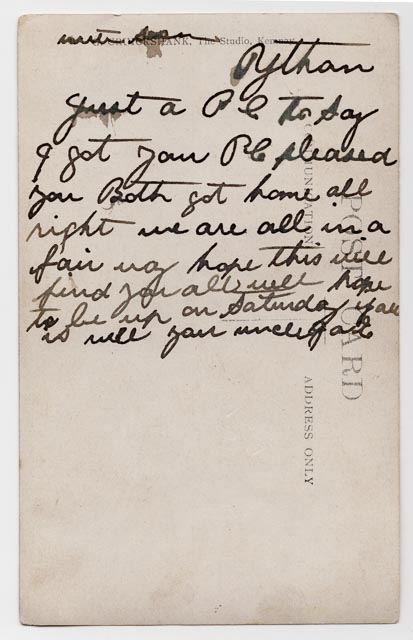 CRUICKSHANK, The Studio, Kemnay
Rythan
Just a P C to Say
I got your P C pleased
you Both got home all
right we are all in a
fair way hope this will
find you all well hope
to be up on Saturday if all
is well your uncle
COMMUNICATION
POST CARD
ADDRESS ONLY